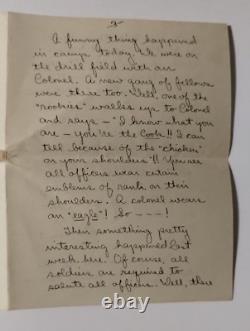 2
A funny thing happened
in camp today. We were on
the drill field with our
Colonel. A new gang of fellows
were there too. Well, one of the
"rookies" walks up to Colonel
and says - "I know what you
are - you're the Cook!! I can
tell because of the "chicken"
on your shoulders"!! You see
all officers wear certain
emblems of rank on their
shoulders. A colonel wears
an "eagle"! So - - - !
Then something pretty
interesting happened last
week here. Of course, all
soldiers are required to
salute all officers. Well, three
ebay